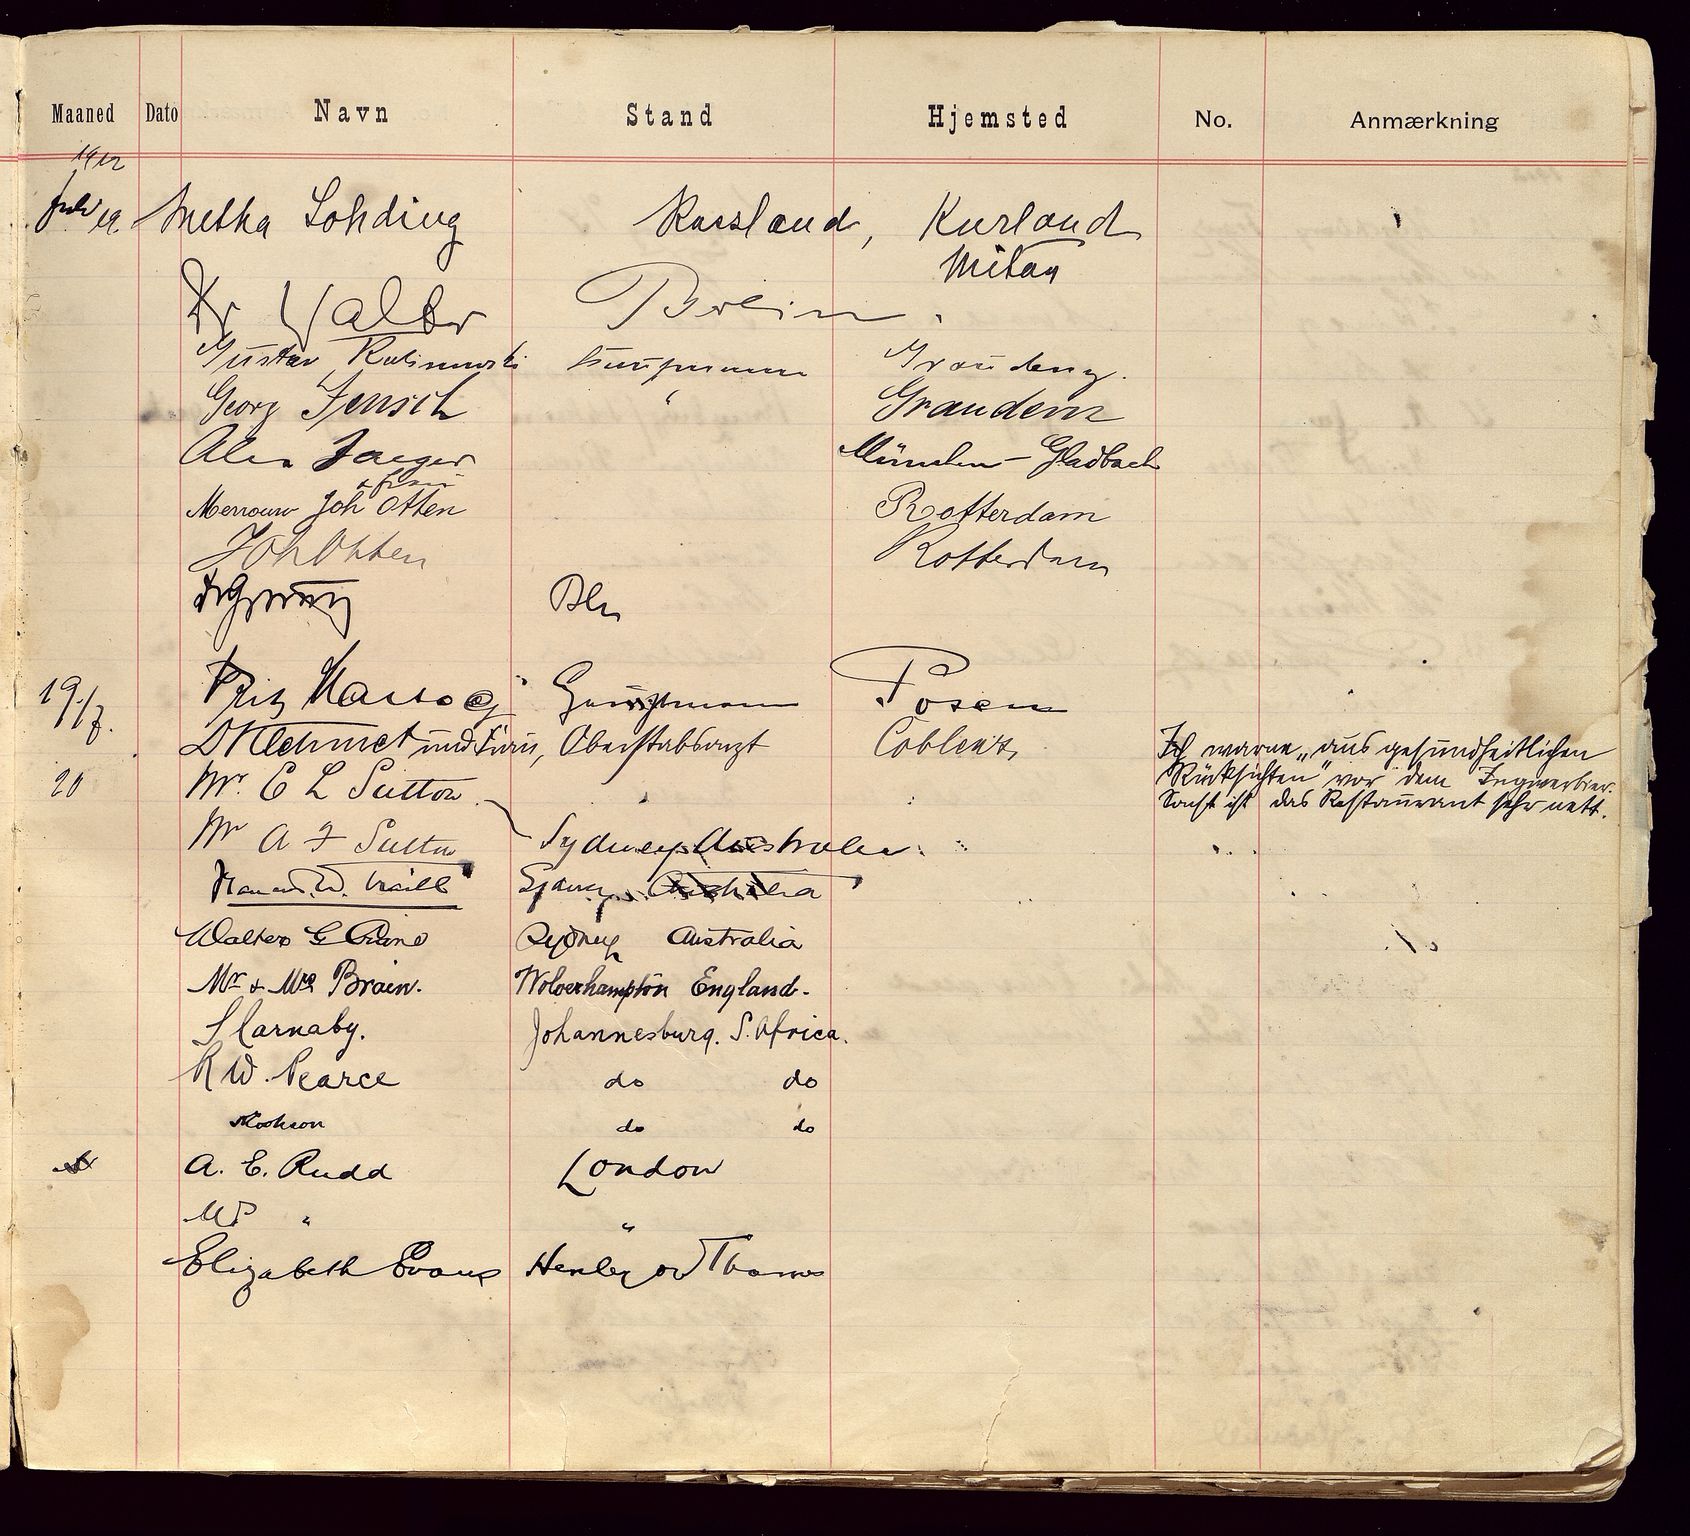 Maaned Dato Navn Stand Hjemsted No. Anmærkning
1912
Juli 19. Metha Lohding Russland, Kurland
Mitau
Dr Berlin.
Gustav Kaufmann Graudenz.
Georg Jensch " Graudenz
Alex Jaeger München-Gladbach
& frau
Mevrouw Joh Otten Rotterdam
Joh Otten Rotterdam
Bln
19/7. Fritz Posen
und Frau, Oberstabsarzt Coblenz, Ich warne „aus gesundheitlichen
Rücksichten" vor dem Ingwerbier.
Sonst ist das Restaurant sehr nett.
20 Mr. E L Sutton
Mr A F Sutton Sydney Australia.
Sydney Australia
Walter G Sydney Australia
Mr & Mrs Brain. Wolverhampton England.
S Carnaby. Johannesburg. S. Africa.
R W. Pearce do do
do do
A. E. Rudd London
Mrs " "
Elizabeth Evans Henley on Thames